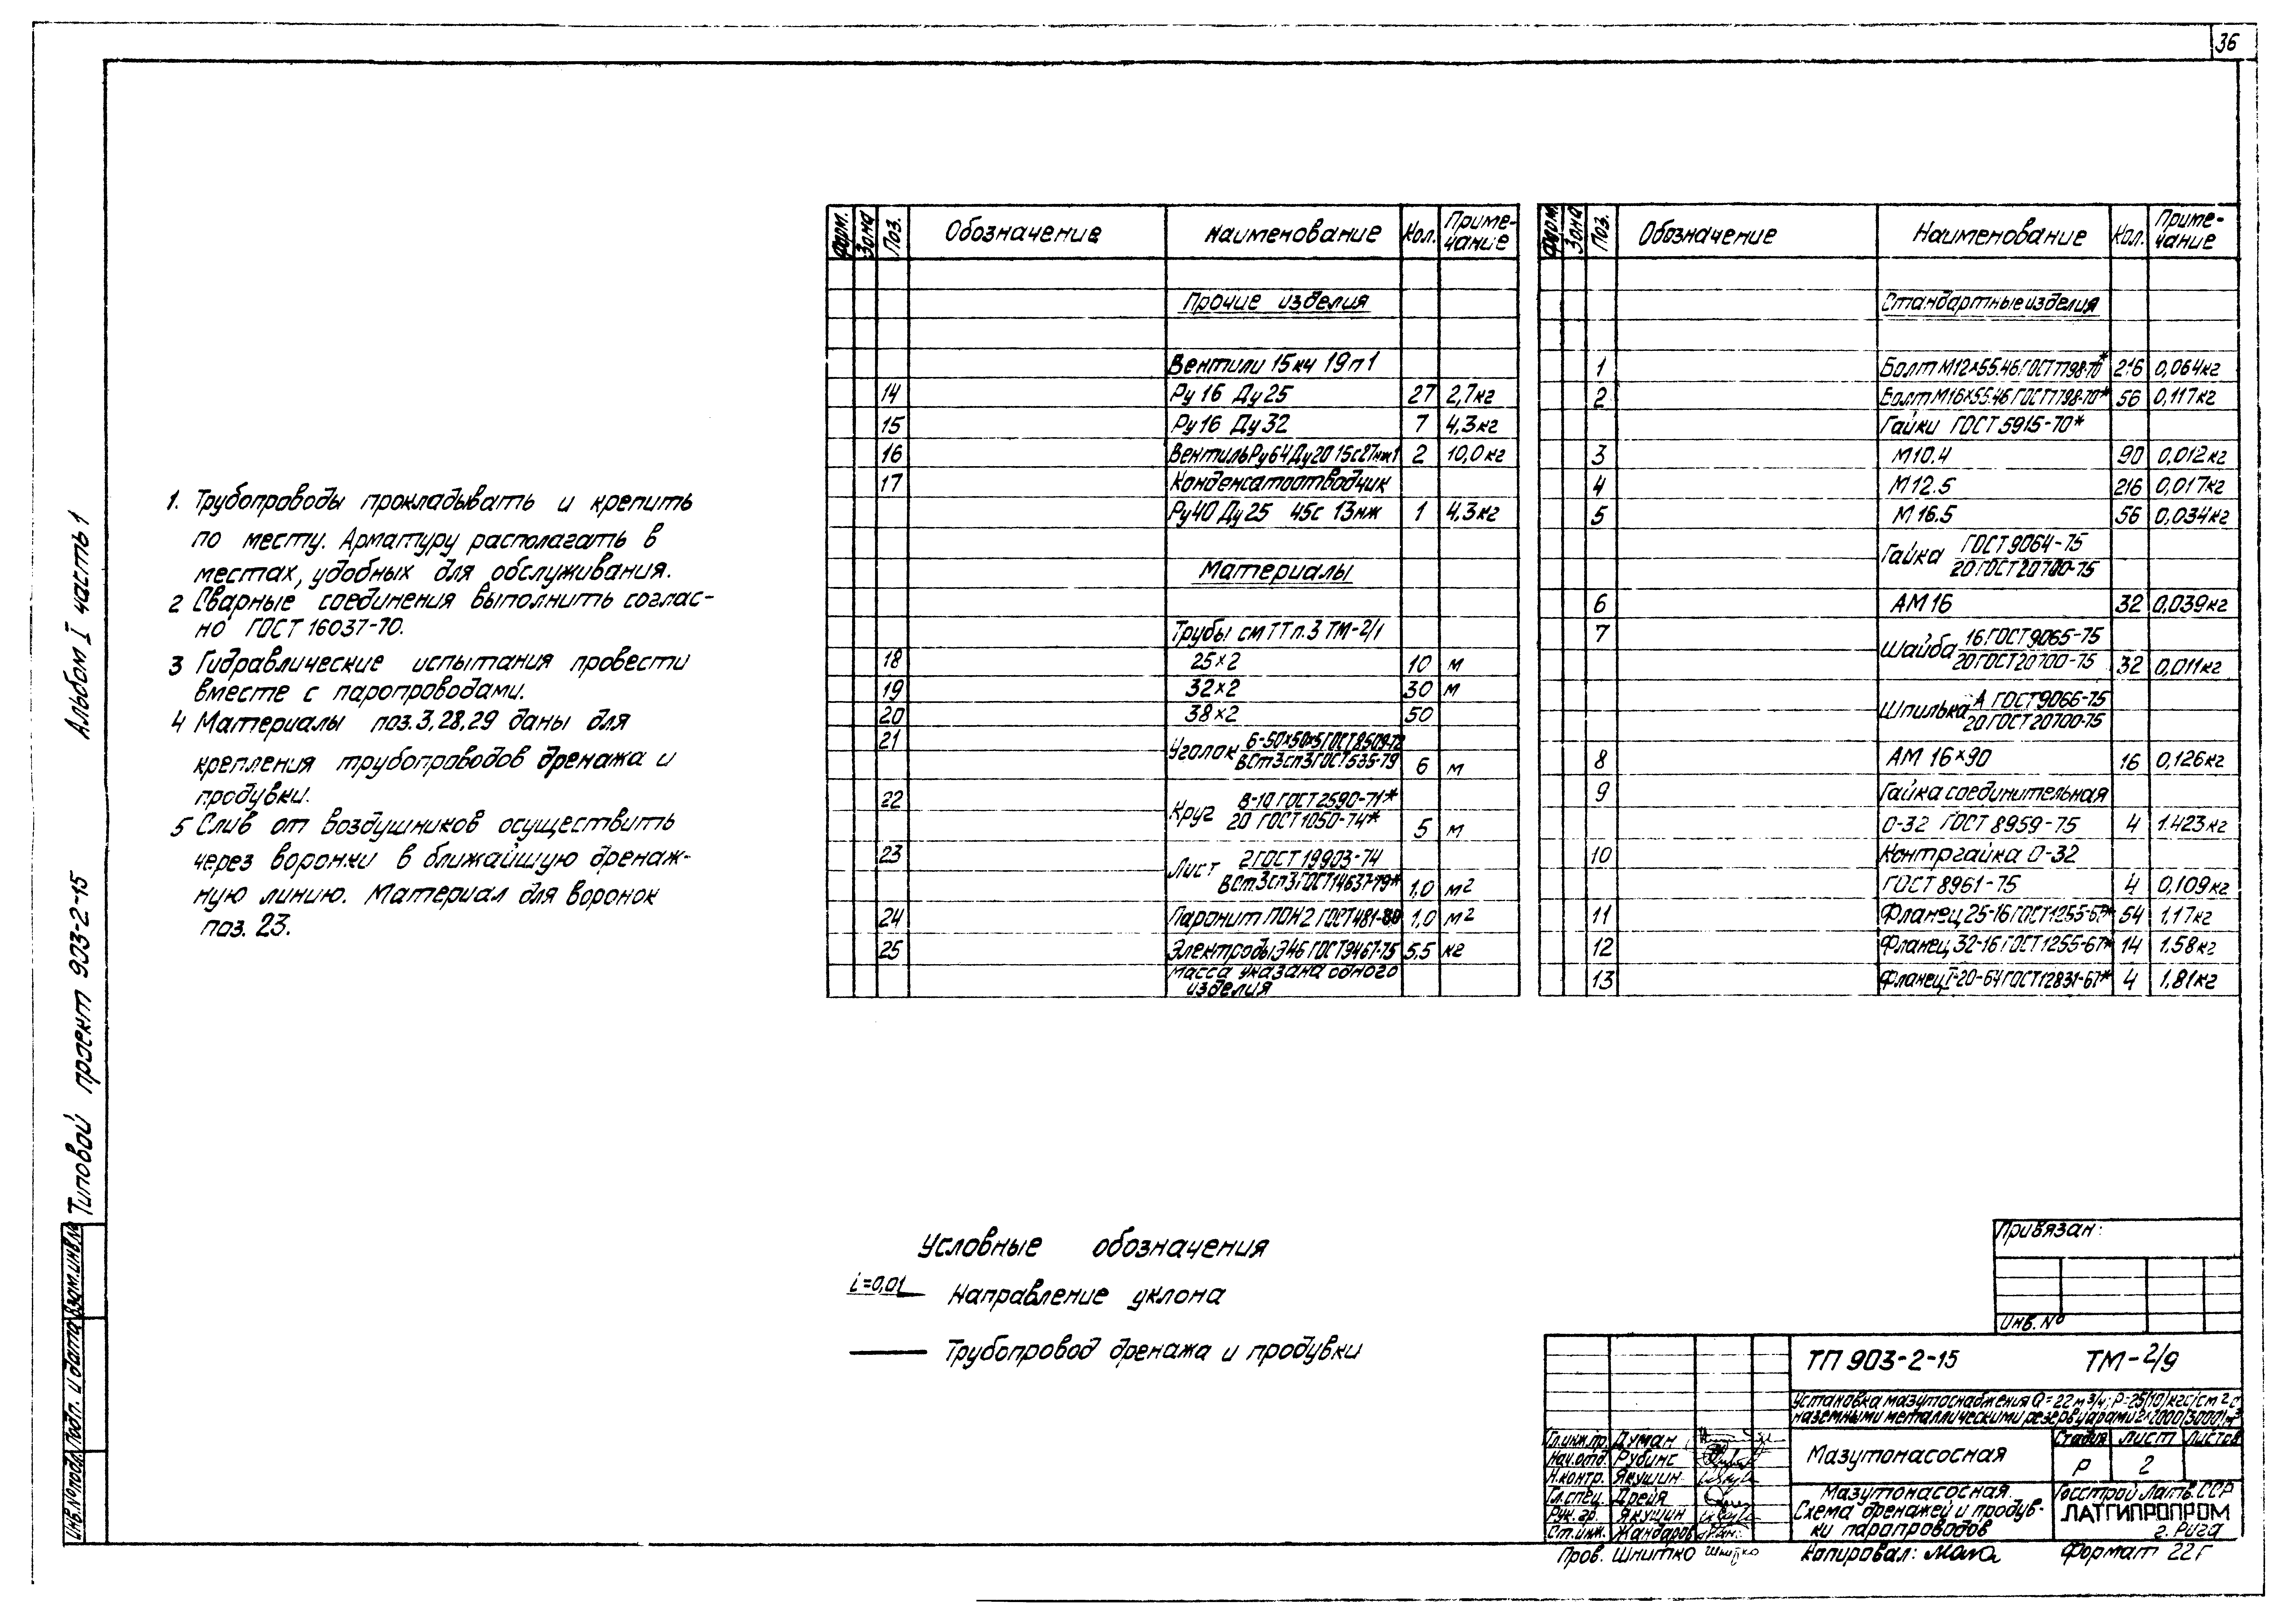 36
Альбом I часть 1
Типовой проект 903-2-15
Инв.№подл. Подп. и дата Взам.инв.№
1. Трубопроводы прокладывать и крепить
по месту. Арматуру располагать в
местах, удобных для обслуживания.
2 Сварные соединения выполнить соглас-
но ГОСТ 16037-70.
3 Гидравлические испытания провести
вместе с паропроводами.
4 Материалы поз.3,28,29 даны для
крепления трубопроводов дренажа и
продувки.
5 Слив от воздушников осуществить
через воронки в ближайшую дренаж-
ную линию. Материал для воронок
поз. 23.
Форм. Зона Поз. Обозначение Наименование Кол. Приме-
чание
Прочие изделия
Вентили 15кч 19п1
14 Ру 16 Ду 25 27 2,7кг
15 Ру16 Ду 32 7 4,3кг
16 ВентильРу64Ду20 15с27нж1 2 10,0кг
17 Конденсатоотводчик
Ру40 Ду 25 45с 13нж 1 4,3кг
Материалы
Трубы см ТТ п.3 ТМ-2/1
18 25×2 10 м
19 32×2 30 м
20 38×2 50
21 Уголок 6-50×50×5ГОСТ8509-72
ВСт3сп3ГОСТ535-79 6 м
22 Круг В-10 ГОСТ2590-71*
20 ГОСТ1050-74* 5 м
23 Лист 2ГОСТ 19903-74
ВСт3сп3ГОСТ14637-79* 1,0 м2
24 Паронит ПОН2 ГОСТ481-80 1,0 м2
25 ЭлектродыЭ46 ГОСТ9467-75 5,5 кг
Масса указана одного
изделия
Форм. Зона Поз. Обозначение Наименование Кол. Приме-
чание
Стандартные изделия
1 Болт М12×55.46ГОСТ7798-70* 216 0,064кг
2 Болт М16×55.46 ГОСТ7798-70* 56 0,117кг
Гайки ГОСТ 5915-70*
3 М10.4 90 0,012кг
4 М12.5 216 0,017кг
5 М 16.5 56 0,034кг
Гайка ГОСТ 9064-75
20 ГОСТ20700-75
6 АМ 16 32 0,039кг
7 Шайба 16 ГОСТ 9065-75
20 ГОСТ20700-75 32 0,011кг
Шпилька А ГОСТ9066-75
20 ГОСТ20700-75
8 АМ 16×90 16 0,126кг
9 Гайка соединительная
0-32 ГОСТ 8959-75 4 1.423кг
10 Контргайка 0-32
ГОСТ 8961-75 4 0,109кг
11 Фланец 25-16 ГОСТ1255-67* 54 1.17кг
12 Фланец 32-16 ГОСТ1255-67* 14 1.58кг
13 Фланец I-20-64ГОСТ12831-67* 4 1,81кг
Условные обозначения
i=0,01 Направление уклона
Трубопровод дренажа и продувки
Привязан:
Инв.№
ТП 903-2-15 ТМ-2/9
Установка мазутоснабжения Q=22м3/ч; Р=25(10)кгс/см2 с
наземными металлическими резервуарами 2×2000(3000)м3
Гл.инж.пр. Думан
Нач.отд. Рубинс
Н.контр. Якушин
Гл.спец. Дрейя
Рук.гр. Якушин
Ст.инж. Жандаров
Пров. Шнитко Шнитко
Мазутонасосная
Стадия Лист Листов
Р 2
Мазутонасосная.
Схема дренажей и продув-
ки паропроводов
Госстрой Латв.ССР
ЛАТГИПРОПРОМ
г. Рига
Копировал: Формат 22Г